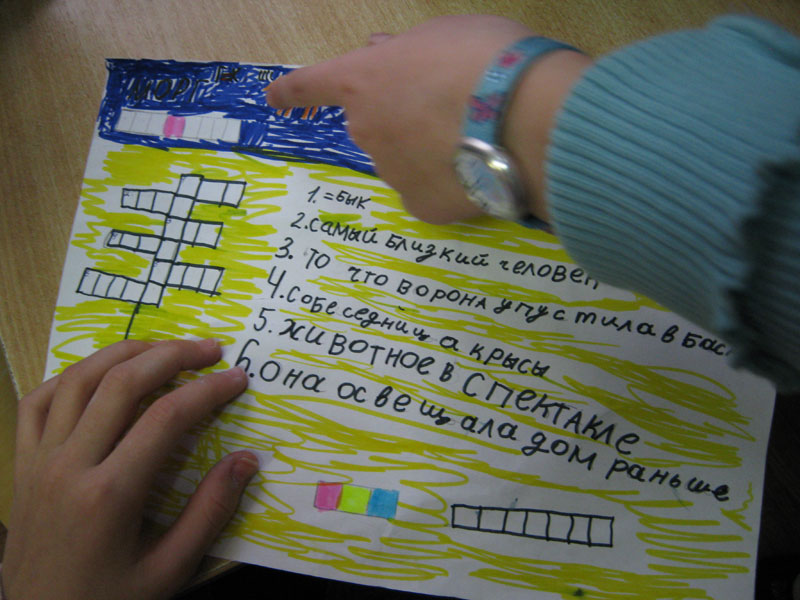 1. = БЫК
2. САМЫЙ БЛИЗКИЙ ЧЕЛОВЕК
3. ТО ЧТО ВОРОНА УПУСТИЛА В БАС
4. СОБЕСЕДНИЦА КРЫСЫ
5. ЖИВОТНОЕ В СПЕКТАКЛЕ
6. ОНА ОСВЕЩАЛА ДОМ РАНЬШЕ